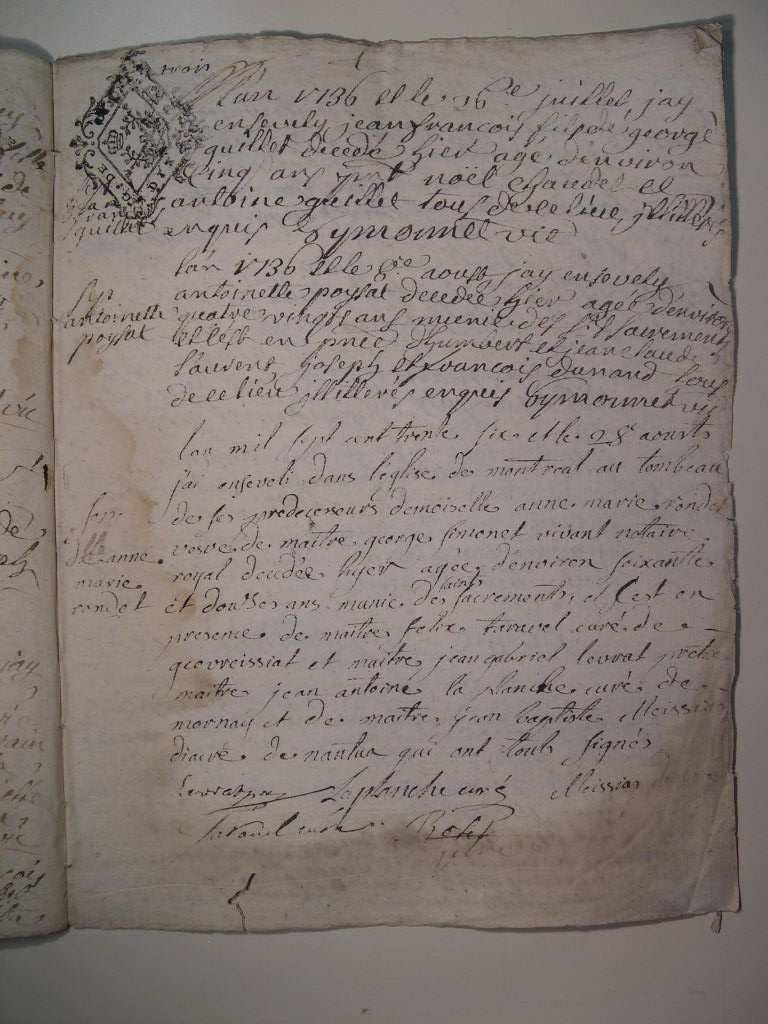 trois
l'an 1736 et le 26e juillet jay
ensevely jean francois fils de george
guillet decede hier agé d'environ
cinq ans pnt noël chaudet et
antoine guillet tous de ce lieu illiterés
enquis
jean
fran
guillet
l'an 1736 et le 8e aoust jay ensevely
antoinette poysat decedée hier agée d'environ
quatre vingts ans munie des sts sacrements
et c'est en pnce d'humbert et jean claude
laurent joseph et francois dunand tous
de ce lieu illiterés enquis
sep
antoinette
poysat
lan mil sept cent trente six et le 28e aoust
j'ai enseveli dans l'église de montreal au tombeau
de ses predecesseurs demoiselle anne marie rondet
vesve de maitre george simonet vivant notaire
royal decedée hyer agée d'environ soixante
et douses ans munie des saints sacrements et c'est en
presence de maitre felix taravel curé de
geovreissiat et maitre jean gabriel levrat pretre
maitre jean antoine la planche curé de
mornay et de maitre jean baptiste Meissiat
diacre de nantua qui ont touts signés
sep
dlle anne
marie
rondet
Levrat ptre Laplanche curé Meissiat
Taravel curé